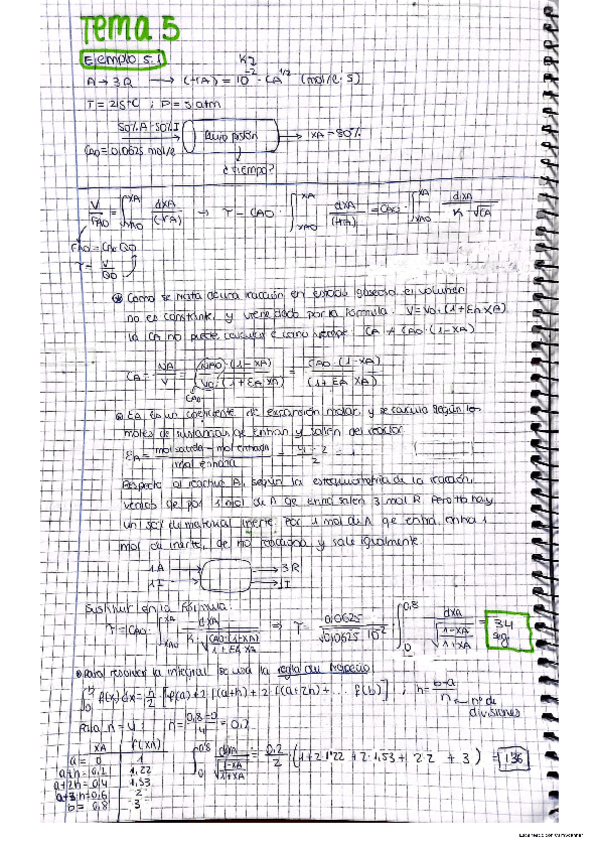 Tema 5
Ejemplo 5.1
A → 3R → (-rA) = 10^-2 · CA^1/2 (mol/l·s)
T = 215ºC ; P = 5 atm
50% A - 50% I
CA0 = 0,0625 mol/l
Flujo pistón → XA = 80%
¿tiempo?
V/FA0 = ∫ XA XA0 dXA/(-rA) → τ = CA0 · ∫ XA XA0 dXA/(-rA) = CA0 · ∫ XA XA0 dXA/K·√CA
FA0 = CA0 · Q0
τ = V/Q0
Como se trata de una reacción en estado gaseoso, el volumen
no es constante, y viene dado por la fórmula: V = V0 · (1+EA XA)
la CA no puede calcularse como siempre: CA ≠ CA0 · (1-XA)
CA = NA/V = NA0 · (1-XA) / V0 · (1+EA XA) = CA0 (1-XA) / (1+EA XA)
CA0
EA es un coeficiente de expansión molar, y se calcula según los
moles de sustancias que entran y salen del reactor
EA = mol salida - mol entrada / mol entrada = 4-2 / 2 = 1
Respecto al reactivo A, según la estequiometría de la reacción,
de por 1 mol de A que entra salen 3 mol R. Pero hay
un 50% de material inerte. Por 1 mol de A que entra, entra 1
mol de inerte, que no reacciona y sale igualmente
1A → → 3R
1I → → 1I
Sustituir en la fórmula
τ = CA0 ∫ XA XA0 dXA / K · √CA0(1-XA)/1+EA XA → τ = 0,0625 / √0,0625 · 10^-2 ∫ 0,8 0 dXA / √1-XA/1+XA = 34 seg
Para resolver la integral se usa la regla del trapecio
∫ b a f(x) dx = h/2 [f(a) + 2 f(a+h) + 2 f(a+2h) + ... f(b)] ; h = b-a / n ← nº de
divisiones
Para n = 4 : h = 0,8-0 / 4 = 0,2
XA f(XA)
a = 0 1
a+h = 0,2 1,22
a+2h = 0,4 1,53
a+3h = 0,6 2
b = 0,8 3
∫ 0,8 0 dXA / √1-XA/1+XA = 0,2/2 · (1 + 2·1,22 + 2·1,53 + 2·2 + 3) = 1,36